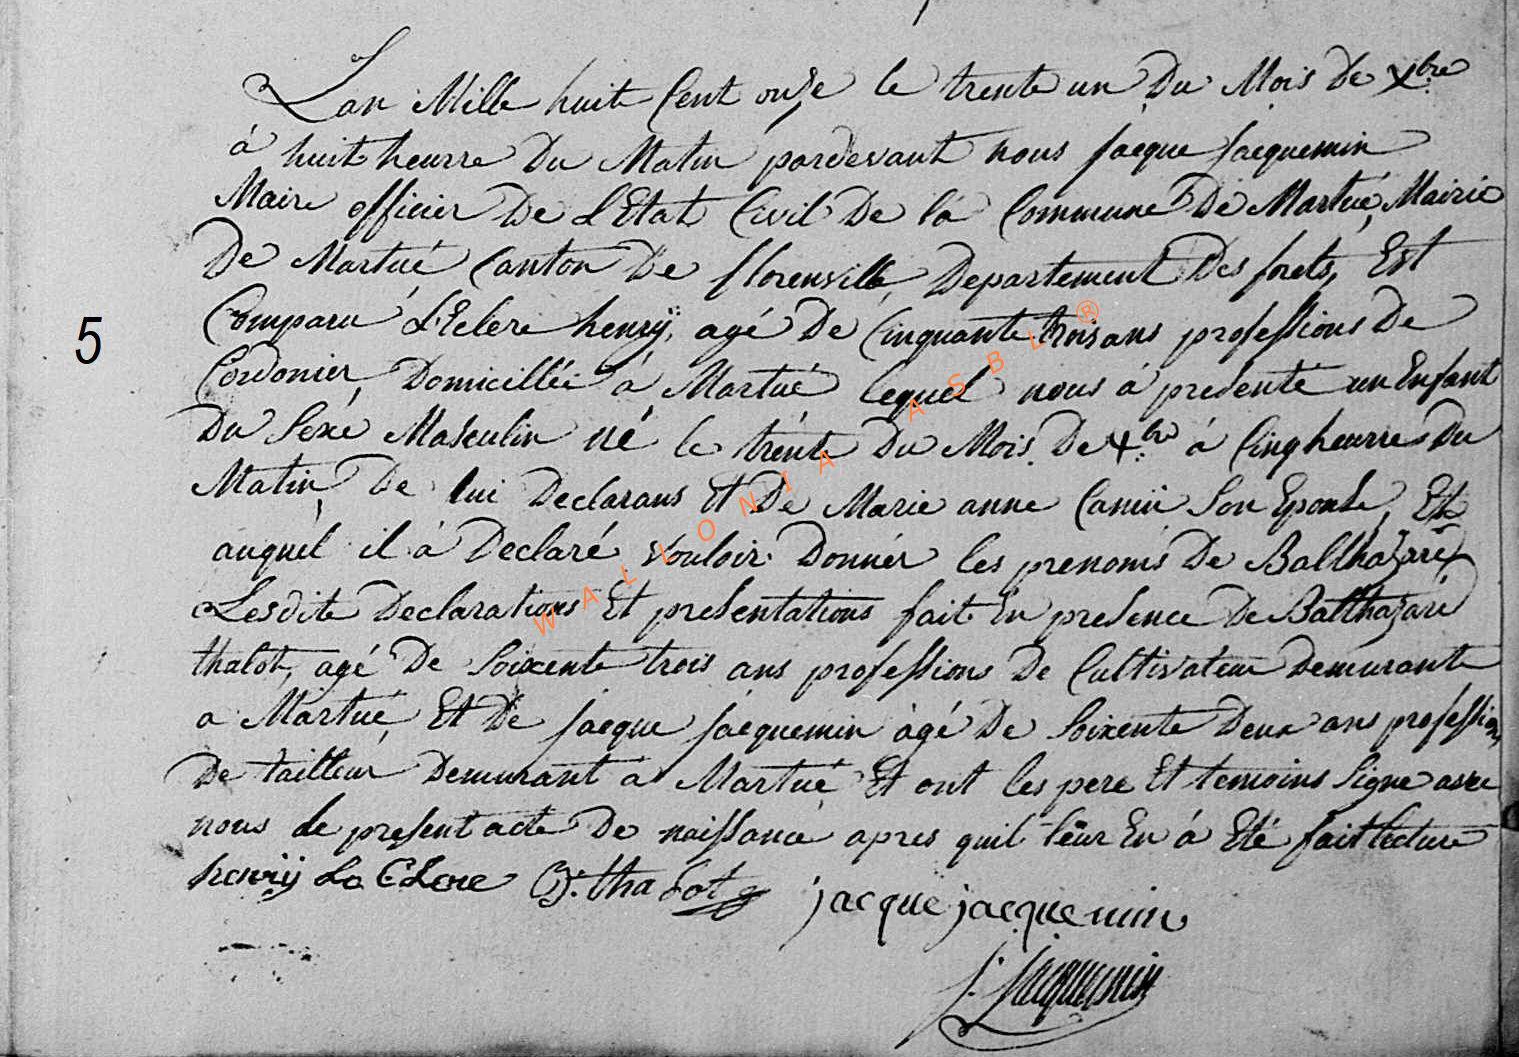 Lan Mille huit Cent onze le trente un Du Mois De Xbre
à huit heurre Du Matin pardevant nous jacque jacquemin
Maire officier De L'Etat Civil De la Commune De Martué, Mairie
De Martué Canton De florenville, Departement Des forets, Est
5
Comparu L'Eclere henrÿ, agé De Cinquante trois ans professions De
Cordonier, Domicillée à Martué lequel nous à presenté un Enfant
Du Sexe Masculin né le trente Du Mois De Xbre à Cinq heurre Du
Matin, De lui Declarans Et De Marie anne Son Epouse, Et
auquel il à Declaré vouloir Donnér les prenoms De Balthazare
Lesdite Declarations Et presentations fait En presence De Balthazare
thalot, agé De Soixente trois ans professions De Cultivateur Demurante
a Martué, Et De jacque jacquemin àgé De Soixente Deux ans profession
De tailleur Demurant à Martué Et ont les pere Et temoins Signe avec
nous le present acte De naissance apres quil leur En à Eté fait lecture
henrÿ Le CLere B. thalot jacque jacquemin
J. Jacquemin
WALLONIA ASBL ®